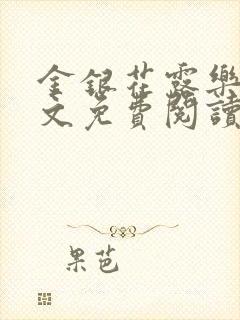 金銀花露樂
文免費閱讀
果芭